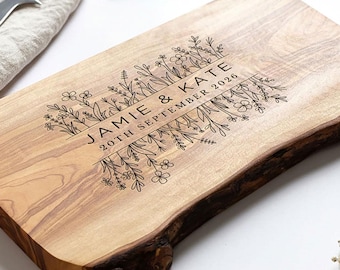 JAMIE & KATE
20TH SEPTEMBER 2026